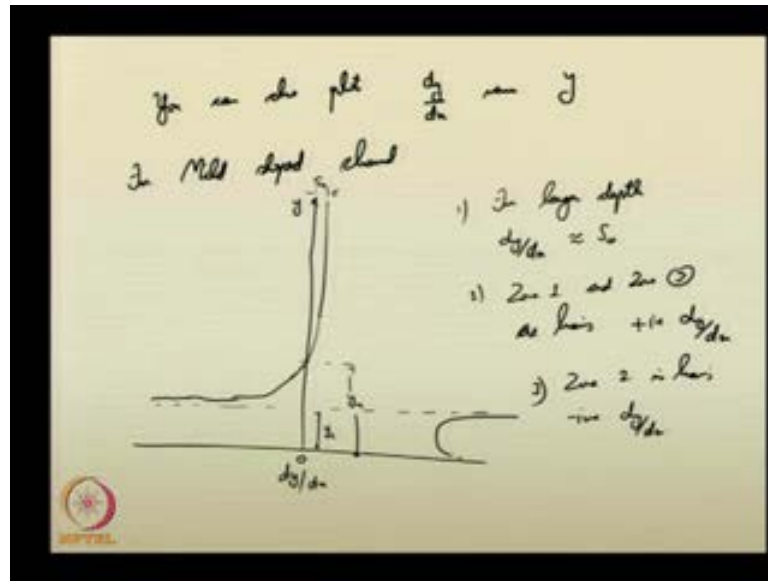 You can also plot dy/dx versus y
For Mild sloped channel
y
S₀
1) For larger depth
dy/dx ≈ S₀
2) Zone 1 and Zone ③
are having +ive dy/dx
3) Zone 2 is having
-ive dy/dx
yₙ
y_c
0
dy/dx
NPTEL